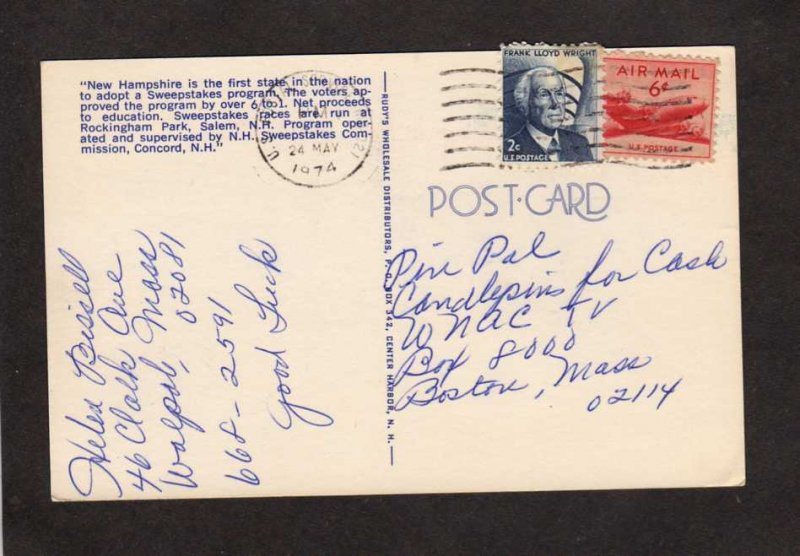 "New Hampshire is the first state in the nation
to adopt a Sweepstakes program. The voters ap-
proved the program by over 6 to 1. Net proceeds
to education. Sweepstakes races are run at
Rockingham Park, Salem, N.H. Program oper-
ated and supervised by N.H. Sweepstakes Com-
mission, Concord, N.H."
Helen Bissell
46 Clark Ave
Walpole, Mass
02081
668-2591
Good Luck
RUDY'S WHOLESALE DISTRIBUTORS, P.O. BOX 342, CENTER HARBOR, N. H.
U.S.
PM
24 MAY
1974
FRANK LLOYD WRIGHT
2c
U.S. POSTAGE
AIR MAIL
6¢
U.S. POSTAGE
POST-CARD
Pin Pal
Candlepins for Cash
WNAC TV
Box 8000
Boston, Mass
02114